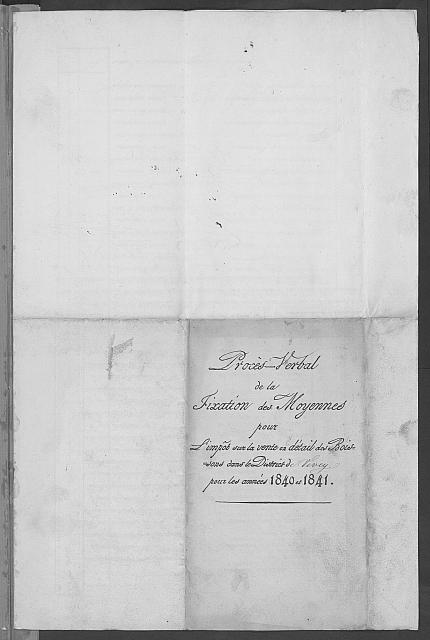 Procès-Verbal
de la
Fixation des Moyennes
pour
L'impôt sur la vente en détail des Bois-
sons dans le District de Vevey
pour les années 1840 et 1841.